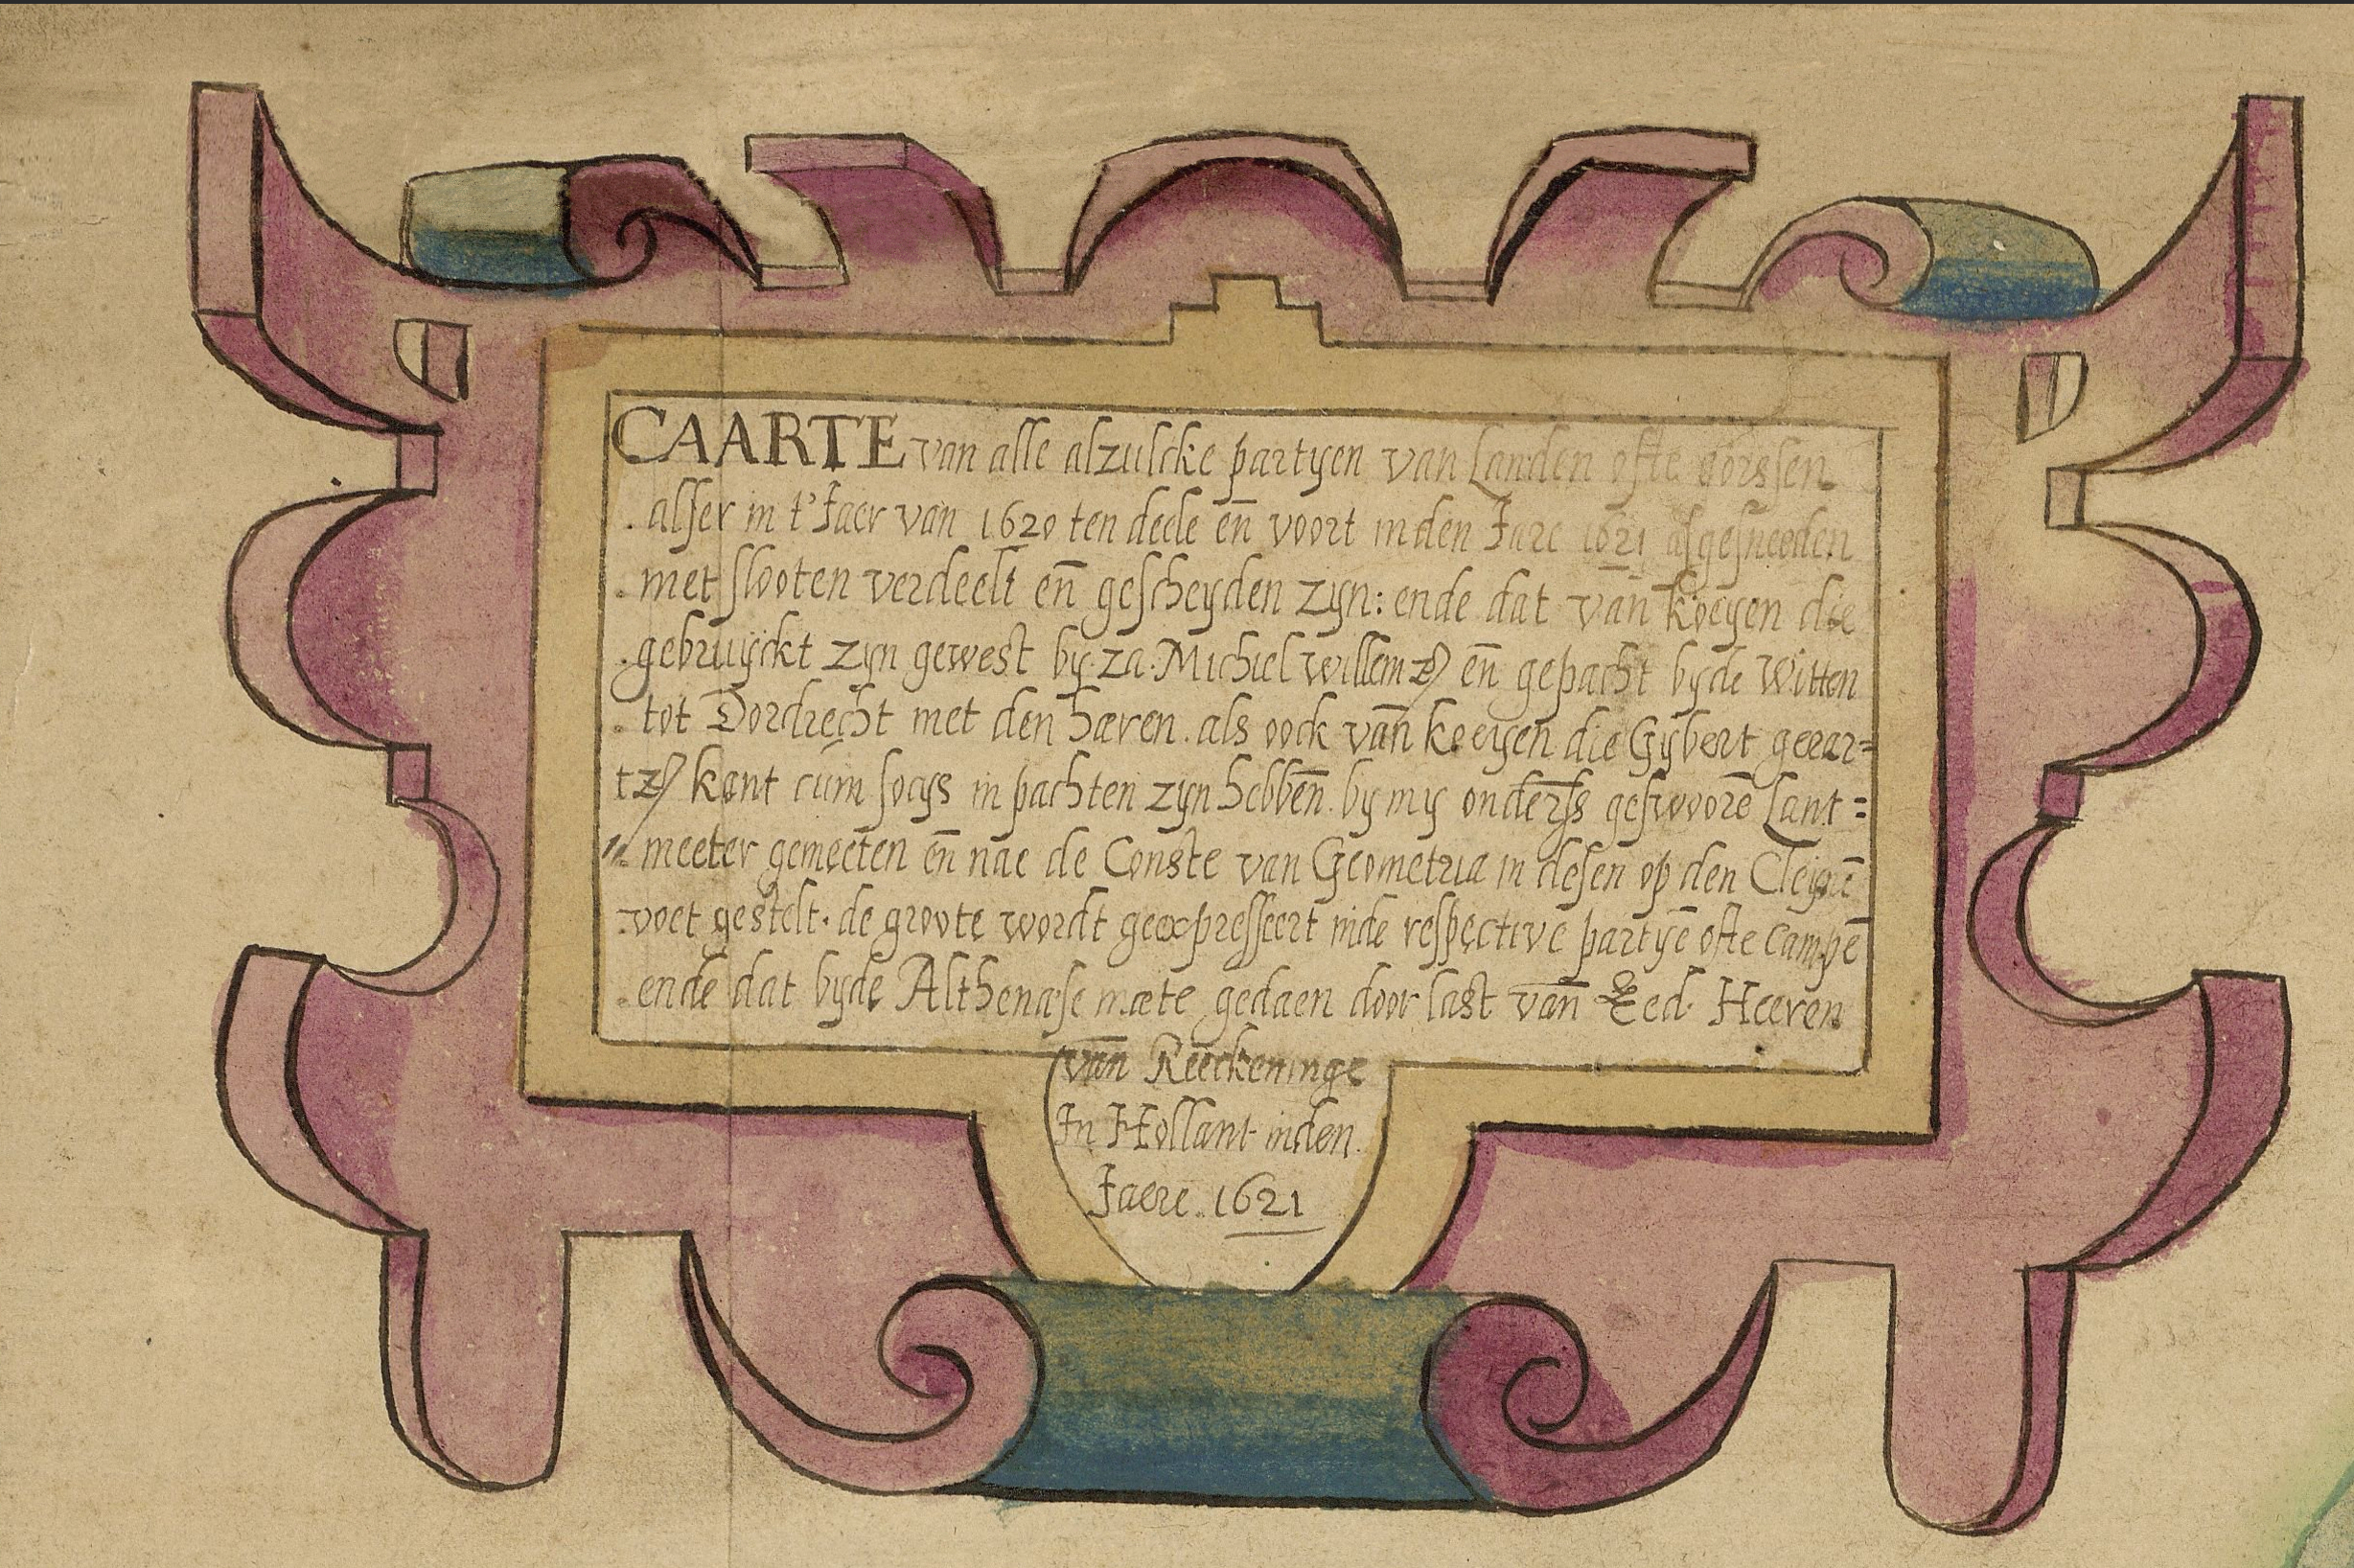 CAARTE van alle alzulcke partyen van Landen ofte gorssen
alser in t'Jaer van 1620 ten deele en̄ voort inden Jare 1621 afgesneeden
met slooten verdeelt en̄ gescheyden zyn: ende dat van̄ koeyen die
gebruyckt zyn gewest by za. Michiel willemz en̄ gepacht byde Witten
tot Dordrecht met den haren. als ook van̄ koeyen die Gybert gerar=
tz kant cum socys in pachten zyn hebben̄. by my onders̄ gesworē Lant=
meeter gemeeten en̄ nae de Conste van Geometria in desen op den Cleynē
voet gestelt. de groote wordt geexpresseert inde respective partyē ofte campē
ende dat byde Althenase mate gedaen door last van̄ Eed. Heeren
van̄ Reeckeninge
In Hollant inden
Jaere. 1621